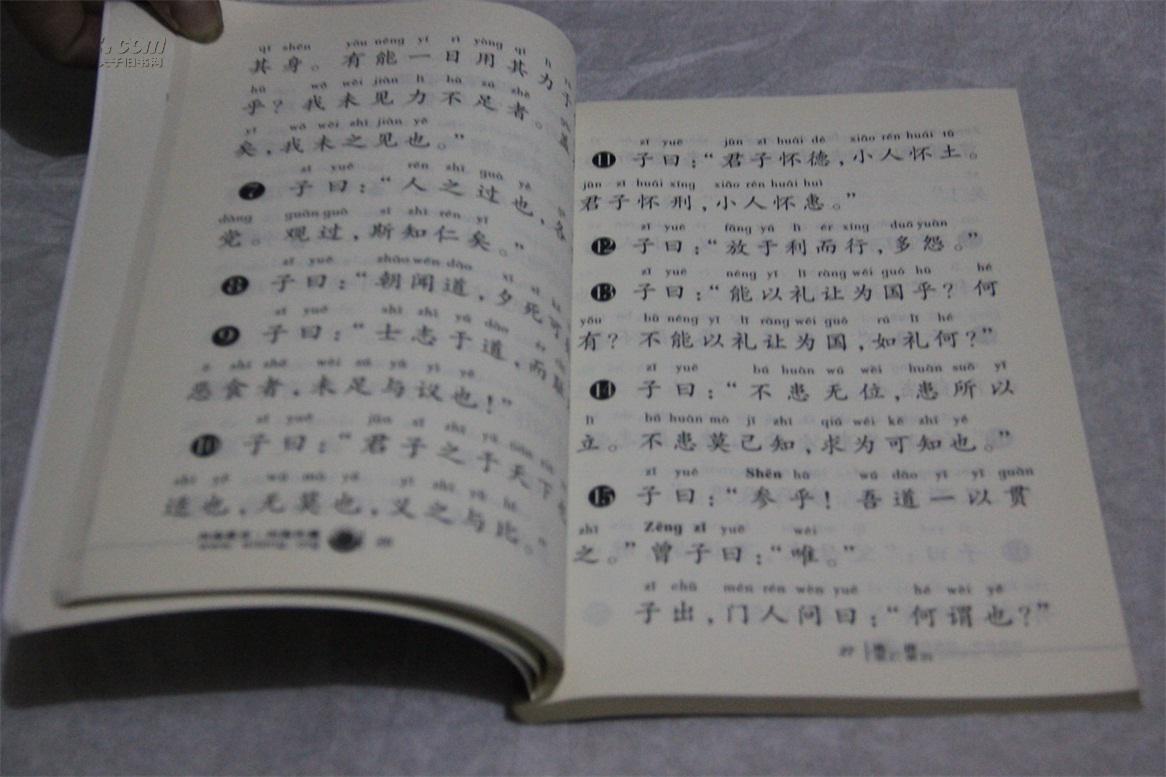 qí shēn yǒu néng yī rì yòng qí lì
其身。有能一日用其力于
hū wǒ wèi jiàn lì bù zú zhě
乎？我未见力不足者。盖
yǐ wǒ wèi zhī jiàn yě
矣，我未之见也。”
zǐ yuē rén zhī guò yě
7 子曰：“人之过也，各
dǎng guān guò sī zhī rén yǐ
党。观过，斯知仁矣。”
zǐ yuē zhāo wén dào xī sǐ kě
8 子曰：“朝闻道，夕死可
zǐ yuē shì zhì yú dào
9 子曰：“士志于道，而耻
è shí zhě wèi zú yǔ yì yě
恶食者，未足与议也！”
zǐ yuē jūn zǐ zhī yú tiān xià
10 子曰：“君子之于天下
shì yě wú mò yě yì zhī yǔ bǐ
适也，无莫也，义之与比。”
26
zǐ yuē jūn zǐ huái dé xiǎo rén huái tǔ
11 子曰：“君子怀德，小人怀土。
jūn zǐ huái xíng xiǎo rén huái huì
君子怀刑，小人怀惠。”
zǐ yuē fàng yú lì ér xíng duō yuàn
12 子曰：“放于利而行，多怨。”
zǐ yuē néng yǐ lǐ ràng wéi guó hū hé
13 子曰：“能以礼让为国乎？何
yǒu bù néng yǐ lǐ ràng wéi guó rú lǐ hé
有？不能以礼让为国，如礼何？”
zǐ yuē bù huàn wú wèi huàn suǒ yǐ
14 子曰：“不患无位，患所以
lì bù huàn mò jǐ zhī qiú wéi kě zhī yě
立。不患莫己知，求为可知也。”
zǐ yuē Shēn hū wú dào yī yǐ guàn
15 子曰：“参乎！吾道一以贯
zhī Zēng zǐ yuē wéi
之。”曾子曰：“唯。”
zǐ chū mén rén wèn yuē hé wèi yě
子出，门人问曰：“何谓也？”
27